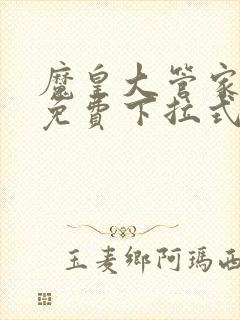 魔皇大管家
免費下拉式
玉麦鄉阿瑪西